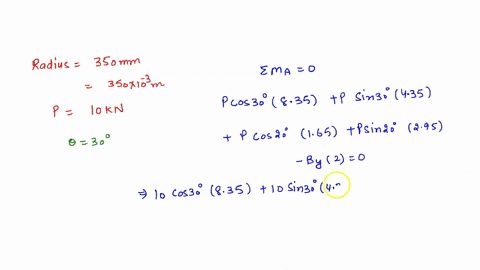 Radius = 350mm
= 350×10⁻³ m
P = 10KN
θ = 30°
ΣM_A = 0
Pcos30° (8.35) + P Sin30° (4.35)
+ P cos20° (1.65) + Psin20° (2.95)
- By (2) = 0
⇒ 10 cos30° (8.35) + 10 Sin30° (4.